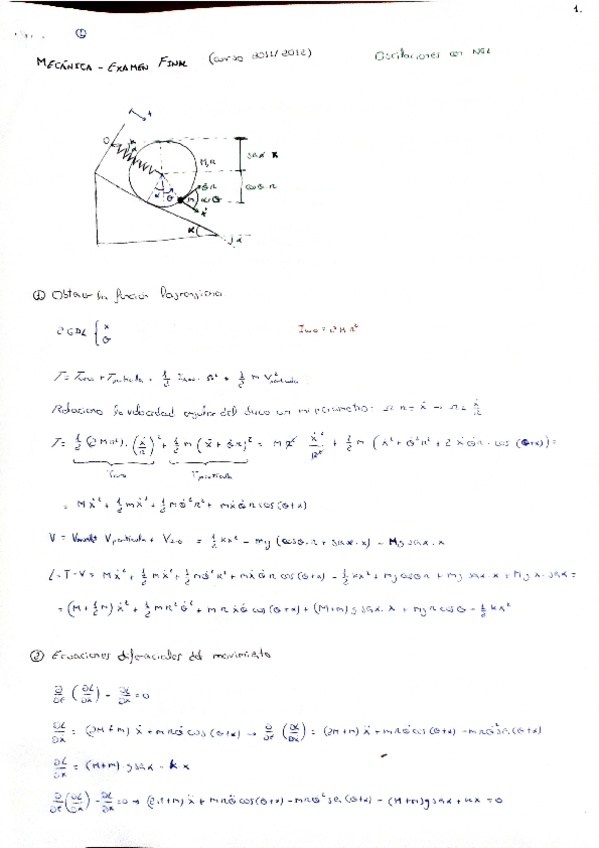 1.
①
MECÁNICA - EXAMEN FINAL (curso 2011/2012) Oscilaciones con NGL
O
x
M,R
senα x
cosθ·R
θ̇R
α+θ
m
ẋ
α θ
α
① Obtener la función Lagrangiana
2 GDL { x
θ
I_aro = 2MR²
T = T_aro + T_partícula = 1/2 I_aro · Ω² + 1/2 m V²_partícula
Relaciono la velocidad angular del disco con mi parámetro: Ω R = ẋ → Ω = ẋ/R
T = 1/2 (2MR²) · (ẋ/R)² + 1/2 m (ẋ + θ̇R)² = MR² ẋ²/R² + 1/2 m (ẋ² + θ̇²R² + 2ẋθ̇R · cos(θ+α)) =
T_aro T_partícula
= Mẋ² + 1/2 mẋ² + 1/2 mθ̇²R² + mẋθ̇R cos(θ+α)
V = V_muelle V_partícula + V_aro = 1/2 kx² - mg (cosθ·R + senα·x) - Mg senα·x
L = T - V = Mẋ² + 1/2 mẋ² + 1/2 mθ̇²R² + mẋθ̇R cos(θ+α) - 1/2 kx² + mg cosθ R + mg senα·x + Mg x·senα =
= (M + 1/2 m) ẋ² + 1/2 mR²θ̇² + mRẋθ̇ cos(θ+α) + (M+m) g senα·x + mgR cosθ - 1/2 kx²
② Ecuaciones diferenciales del movimiento
∂/∂t (∂L/∂ẋ) - ∂L/∂x = 0
∂L/∂ẋ = (2M+m) ẋ + mRθ̇ cos(θ+α) → ∂/∂t (∂L/∂ẋ) = (2M+m) ẍ + mRθ̈ cos(θ+α) - mRθ̇² sen(θ+α)
∂L/∂x = (M+m)·g senα - kx
∂/∂t (∂L/∂ẋ) - ∂L/∂x = 0 → (2M+m) ẍ + mRθ̈ cos(θ+α) - mRθ̇² sen(θ+α) - (M+m) g senα + kx = 0